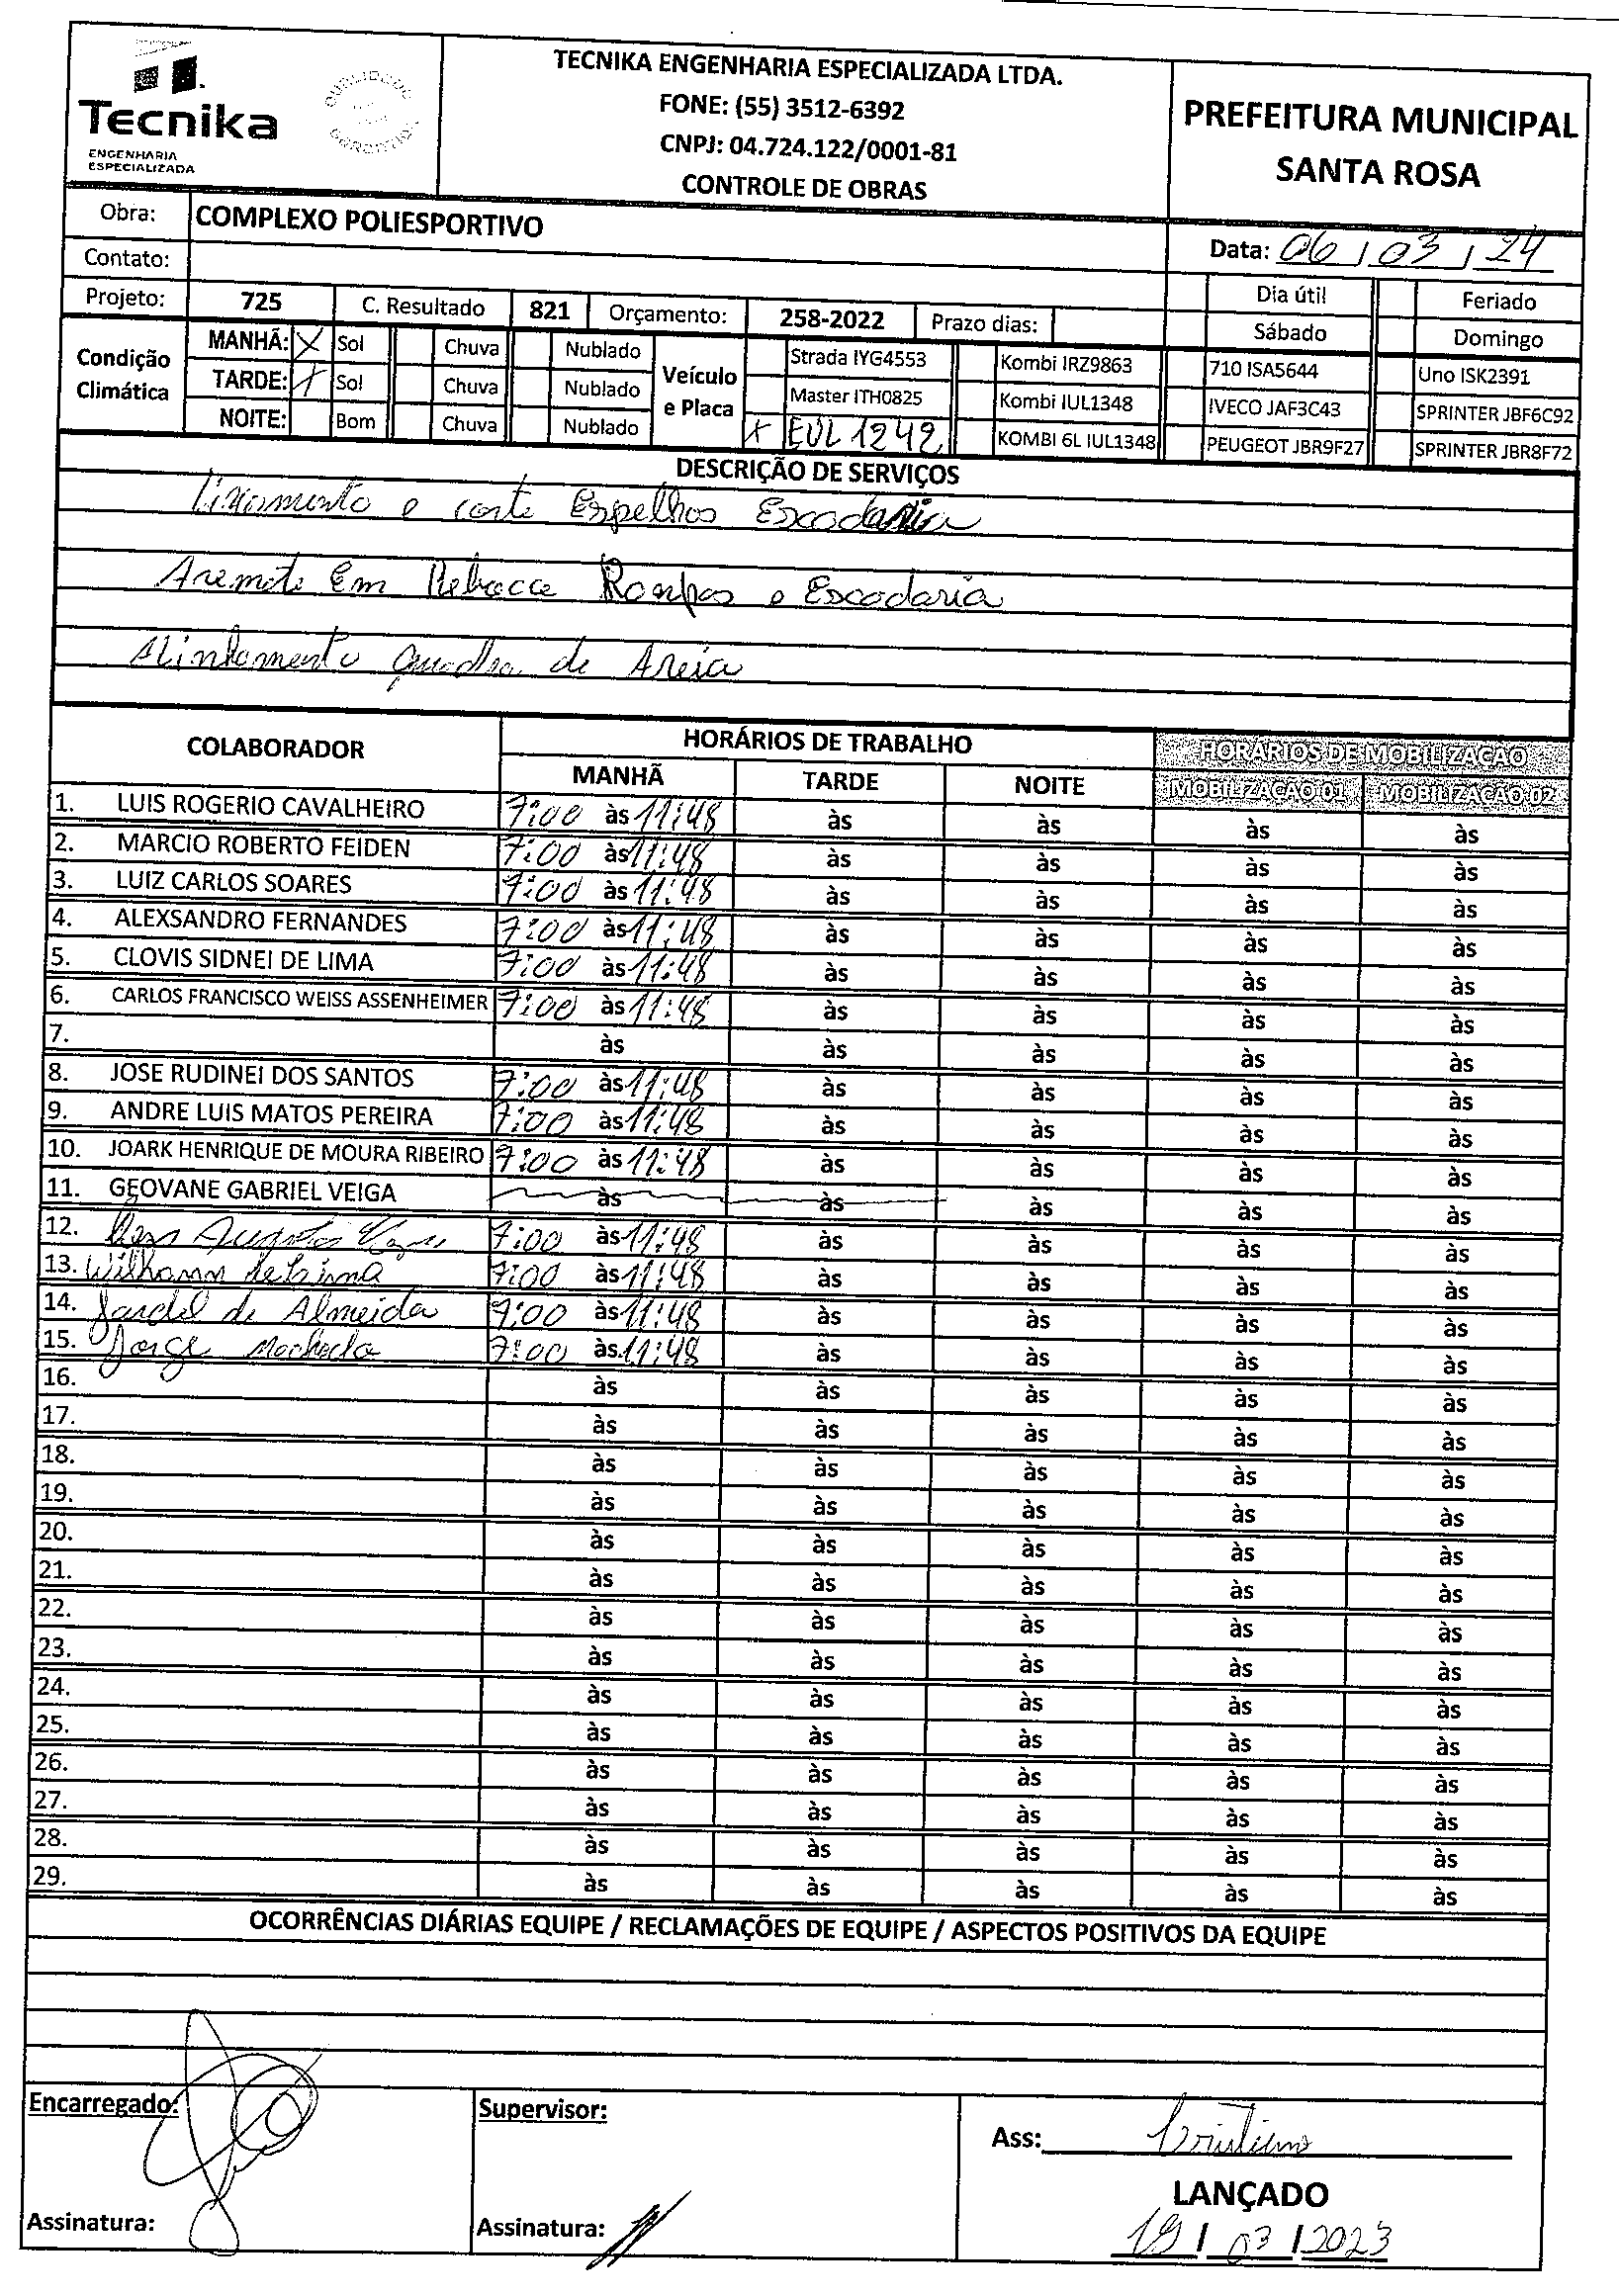 Tecnika
ENGENHARIA
ESPECIALIZADA
TECNIKA ENGENHARIA ESPECIALIZADA LTDA.
FONE: (55) 3512-6392
CNPJ: 04.724.122/0001-81
CONTROLE DE OBRAS
PREFEITURA MUNICIPAL
SANTA ROSA
Obra: COMPLEXO POLIESPORTIVO
Data: 06 / 03 / 24
Contato:
Dia útil Feriado
Projeto: 725 C. Resultado 821 Orçamento: 258-2022 Prazo dias:
Sábado Domingo
Condição Climática
MANHÃ: X Sol Chuva Nublado
TARDE: X Sol Chuva Nublado
NOITE: Bom Chuva Nublado
Veículo e Placa
Strada IYG4553 Kombi IRZ9863 710 ISA5644 Uno ISK2391
Master ITH0825 Kombi IUL1348 IVECO JAF3C43 SPRINTER JBF6C92
X EUL 1242 KOMBI 6L IUL1348 PEUGEOT JBR9F27 SPRINTER JBR8F72
DESCRIÇÃO DE SERVIÇOS
e corte Espelhos Escadaria
Em Reboco Rampas e Escadaria
quadra de Areia
COLABORADOR HORÁRIOS DE TRABALHO HORÁRIOS DE MOBILIZAÇÃO
MANHÃ TARDE NOITE MOBILIZAÇÃO 01 MOBILIZAÇÃO 02
1. LUIS ROGERIO CAVALHEIRO 7:00 às 11:48 às às às às
2. MARCIO ROBERTO FEIDEN 7:00 às 11:48 às às às às
3. LUIZ CARLOS SOARES 7:00 às 11:48 às às às às
4. ALEXSANDRO FERNANDES 7:00 às 11:48 às às às às
5. CLOVIS SIDNEI DE LIMA 7:00 às 11:48 às às às às
6. CARLOS FRANCISCO WEISS ASSENHEIMER 7:00 às 11:48 às às às às
7. às às às às às
8. JOSE RUDINEI DOS SANTOS 7:00 às 11:48 às às às às
9. ANDRE LUIS MATOS PEREIRA 7:00 às 11:48 às às às às
10. JOARK HENRIQUE DE MOURA RIBEIRO 7:00 às 11:48 às às às às
11. GEOVANE GABRIEL VEIGA às às às às às
12. Augusto 7:00 às 11:48 às às às às
13. 7:00 às 11:48 às às às às
14. Jardel de Almeida 7:00 às 11:48 às às às às
15. Jorge Machado 7:00 às 11:48 às às às às
16. às às às às às
17. às às às às às
18. às às às às às
19. às às às às às
20. às às às às às
21. às às às às às
22. às às às às às
23. às às às às às
24. às às às às às
25. às às às às às
26. às às às às às
27. às às às às às
28. às às às às às
29. às às às às às
OCORRÊNCIAS DIÁRIAS EQUIPE / RECLAMAÇÕES DE EQUIPE / ASPECTOS POSITIVOS DA EQUIPE
Encarregado: Supervisor:
Ass: Cristiano
LANÇADO
Assinatura: Assinatura:
19 / 03 / 2023